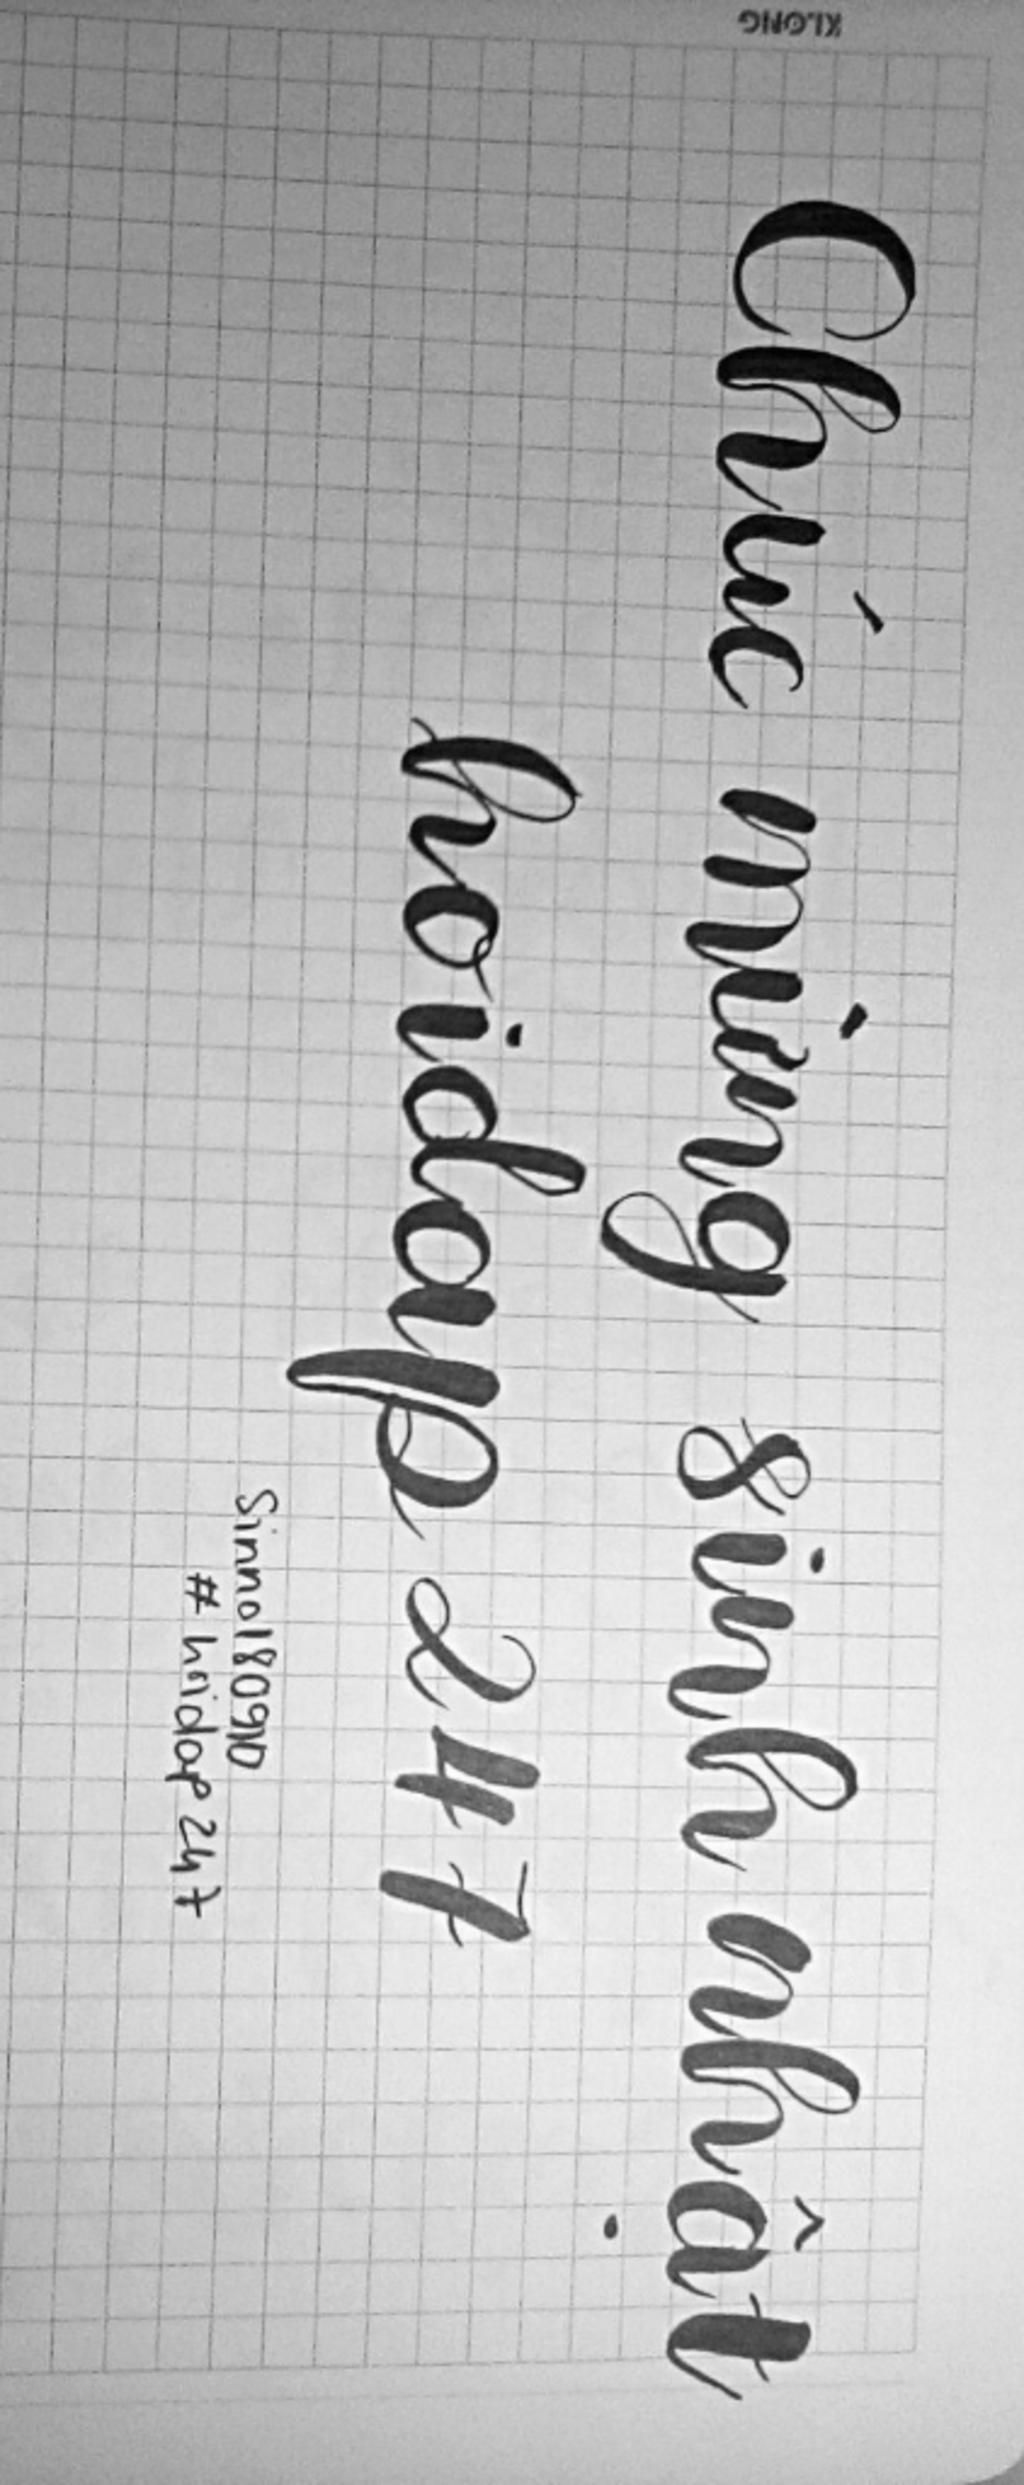 KLONG
Chúc mừng sinh nhật
hoidap 247
Sinno180910
# hoidap 247